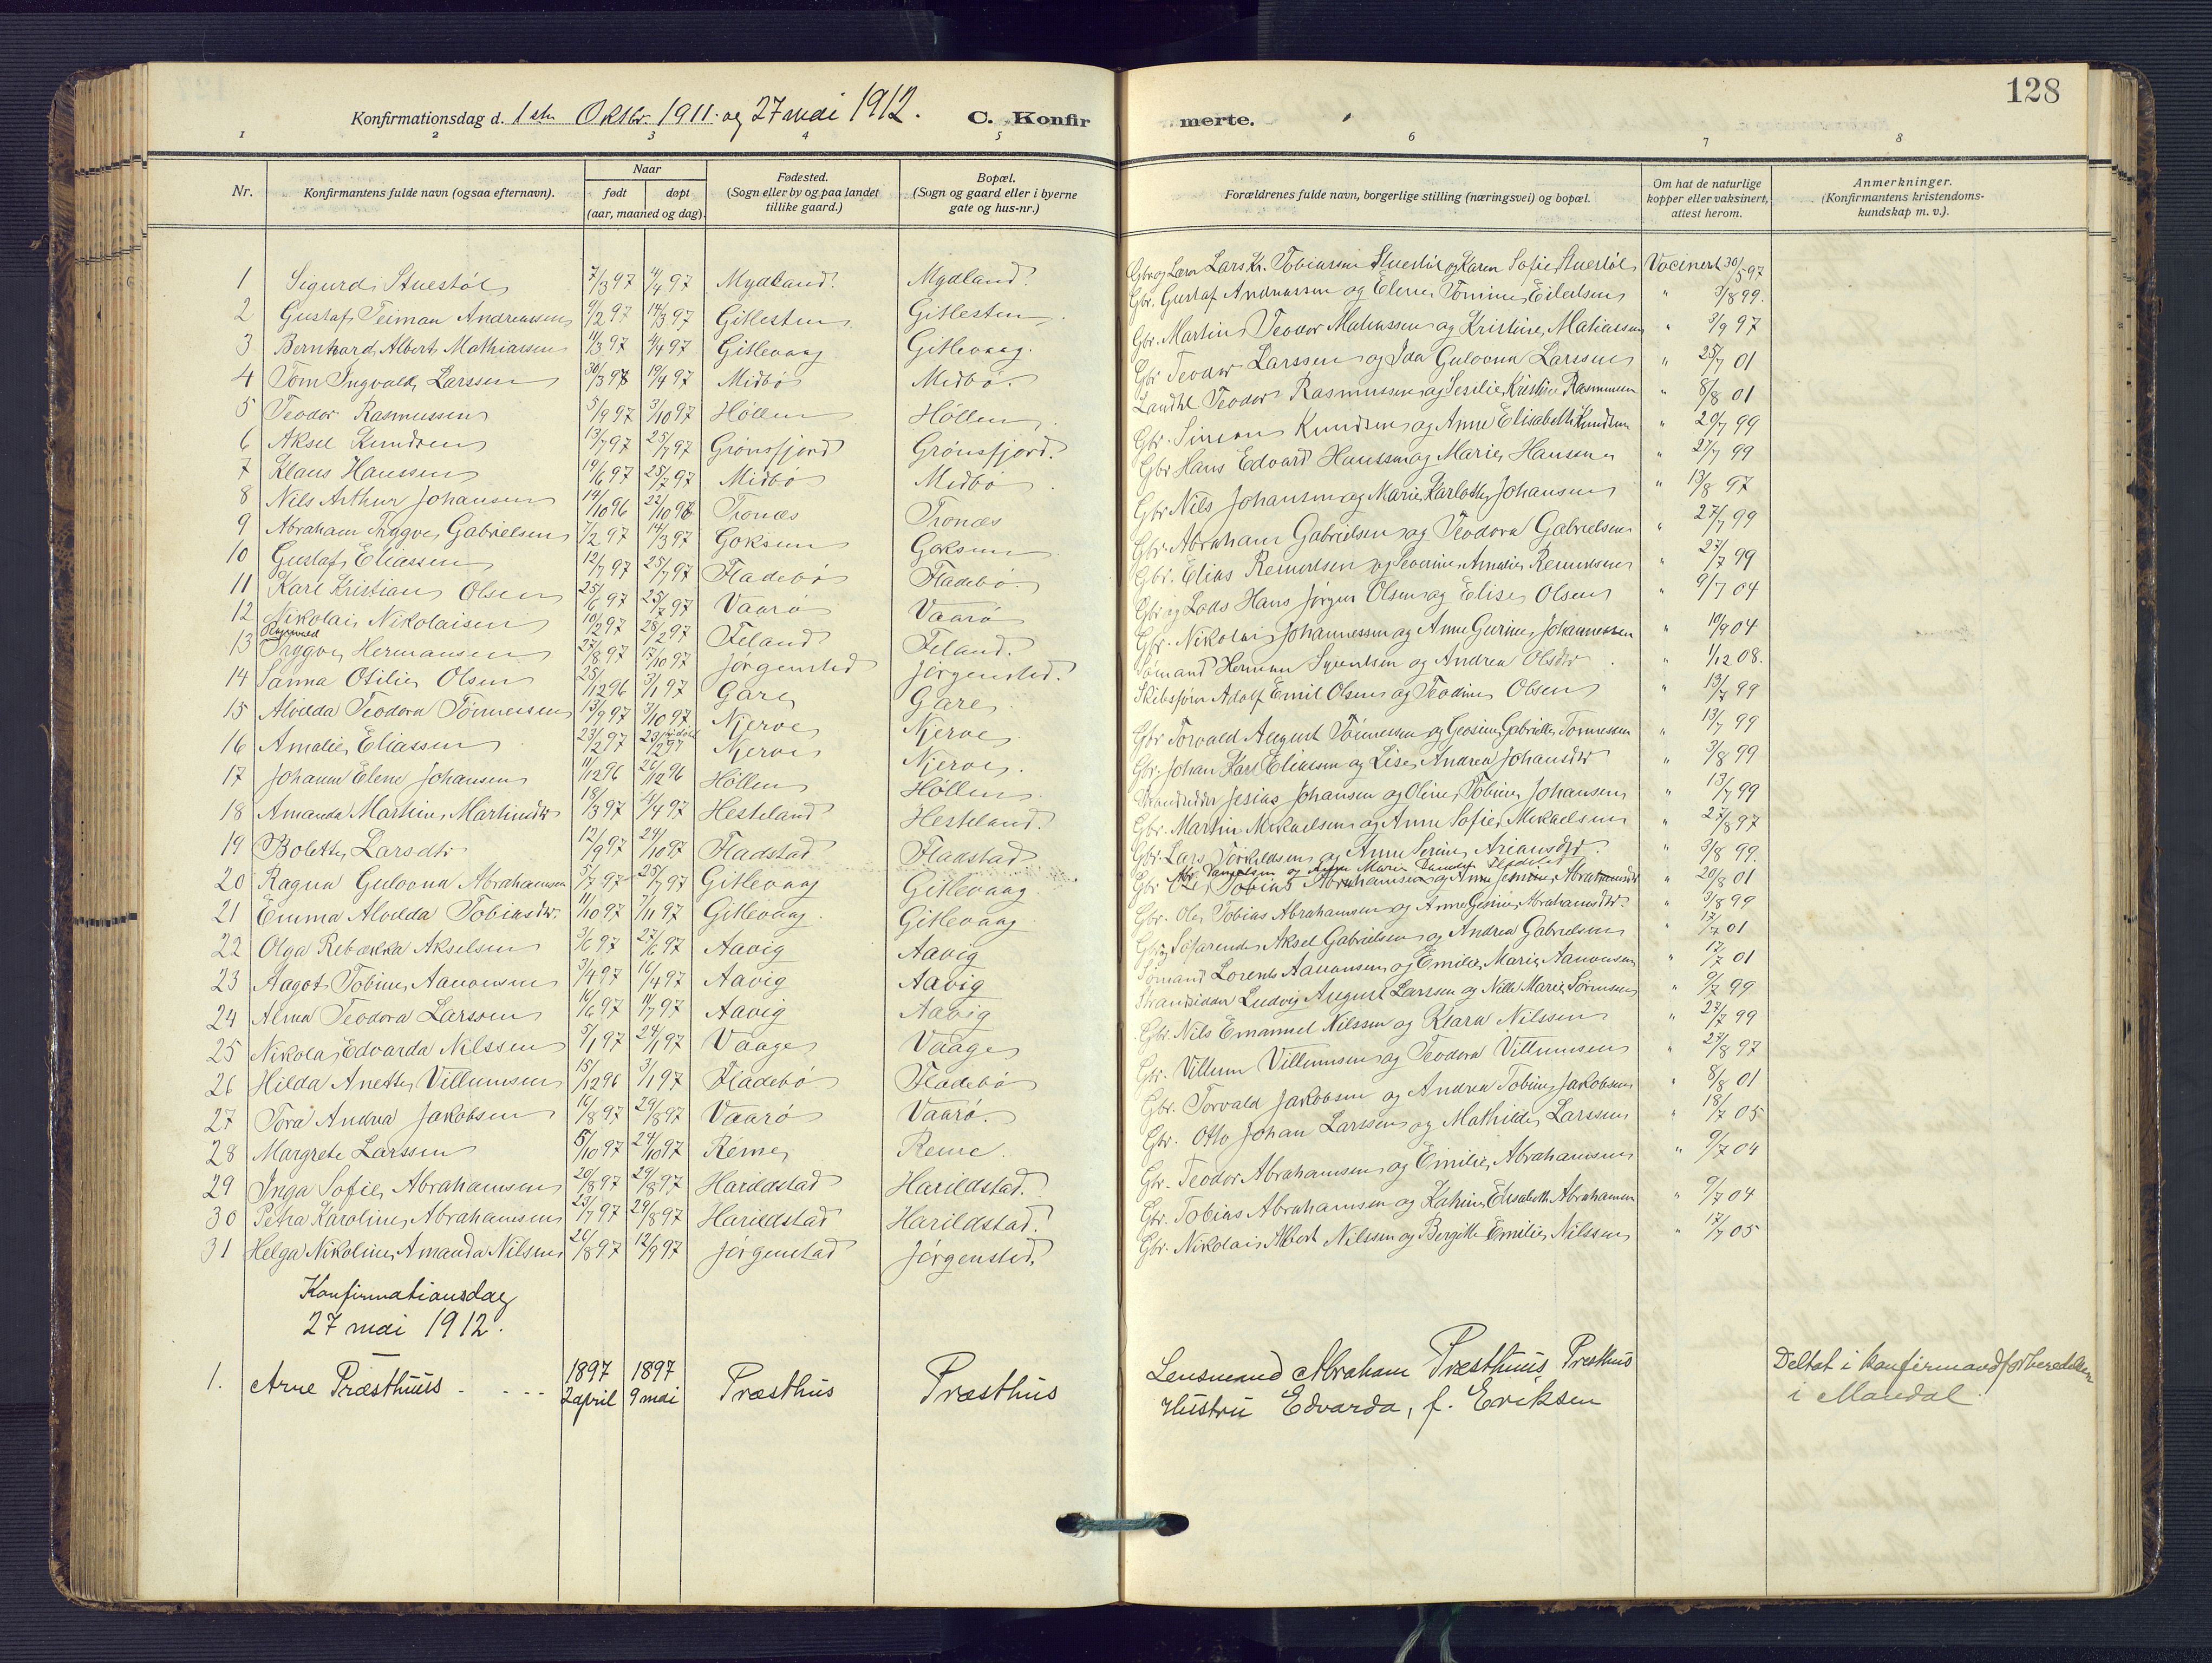 128
Konfirmationsdag d. 1ste Oktbr. 1911. og 27 mai 1912. C. Konfirmerte.
1 2 3 4 5 6 7 8
Nr. Konfirmantens fulde navn (ogsaa efternavn). Naar født døpt (aar, maaned og dag). Fødested. (Sogn eller by og paa landet tillike gaard.) Bopæl. (Sogn og gaard eller i byerne gate og hus-nr.) Forældrenes fulde navn, borgerlige stilling (næringsvei) og bopæl. Om hat de naturlige kopper eller vaksinert, attest herom. Anmerkninger. (Konfirmantens kristendoms-kundskap m. v.).
1 Sigurd Stuestøl 7/3 97 4/4 97 Mydland Mydland Gbr og Lærer Lars Kr. Tobiassen Stuestøl og Karen Sofie Stuestøl Vacinert 30/5 97
2 Gustaf Teiman Andreassen 9/2 97 14/3 97 Gitlesten Gitlesten Gbr. Gustaf Andreassen og Elene Tomine Eilertsen " 3/8 99.
3 Bernhard Albert Mathiassen 11/3 97 4/4 97 Gitlevaag Gitlevaag. Gbr. Martin Teodor Mathiassen og Kristine Mathiassen " 3/9 97
4 Tom Ingvald Larssen 30/3 97 19/4 97 Midbø Midbø. Gbr Teodor Larssen og Ida Gulovna Larssen " 25/7 01
5 Teodor Rasmussen 5/9 97 3/10 97 Høllen Høllen Landhl Teodor Rasmussen og Sesilie Kristine Rasmussen " 8/8 01
6 Aksel Knudsen 13/7 97 25/7 97 Grønsfjord Grønsfjord. Gbr. Simon Knudsen og Anne Elisabeth Knudsen " 20/7 99
7 Klaus Hanssen 19/6 97 25/7 97 Midbø Midbø Gbr Hans Edvard Hanssen og Marie Hansen " 27/7 99
8 Nils Arthur Johansen 14/10 96 22/10 96 Tronæs Tronæs Gbr Nils Johansen og Marie Karlotte Johansen " 13/8 97
9 Abraham Tryggve Gabrielsen 7/2 97 14/3 97 Goksem Goksem Gbr. Abraham Gabrielsen og Teodora Gabrielsen " 27/7 99
10 Gustaf Eliassen 12/7 97 25/7 97 Fladebø Fladebø. Gbr. Elias Reinertsen og Severine Amalie Reinertsen " 27/7 99
11 Karl Kristian Olsen 25/6 97 25/7 97 Vaarø Vaarø Gbr og Lods Hans Jørgen Olsen og Elise Olsen " 9/7 04
12 Nikolai Nikolaisen 10/2 97 28/2 97 Feland Feland. Gbr. Nikolai Johannessen og Anne Gurine Johannessen " 10/9 04
13 Tryggve Hermansen 27/8 97 17/10 97 Jørgensted Jørgensted. Sømand Herman Syvertsen og Andrea Olsdtr. " 1/12 08.
14 Sanna Otilie Olsen 25/12 96 3/1 97 Gare Gare Skibsførn Adolf Emil Olsen og Teodine Olsen " 13/7 99
15 Alvilda Teodora Tønnessen 13/9 97 3/10 97 Njerve Njerve Gbr Torvald August Tønnessen og Gesine Gabrielle Tønnessen " 13/7 99
16 Amalie Eliassen 23/2 97 23/2 97 Njerve Njerve. Gbr. Johan Karl Eliassen og Lise Andrea Johansdtr " 3/8 99
17 Johanne Elene Johansen 11/12 96 26/12 96 Høllen Høllen Strandsidder Jesias Johansen og Oline Tobine Johansen " 13/7 99
18 Amanda Martine Martinsdtr 18/3 97 4/4 97 Hesteland Hesteland. Gbr. Martin Mekaelsen og Anne Sofie Mekaelsen " 27/8 97
19 Bolette Larsdtr 12/9 97 24/10 97 Fladstad Fladstad Gbr. Lars Torkildsen og Anne Serine Ariansdtr. " 3/8 99.
20 Ragna Gulovna Abrahamsen 5/7 97 25/7 97 Gitlevaag Gitlevaag Gbr Ole Tobias Abrahamsen og Anne Jesine Abrahamsdtr " 20/8 01
21 Emma Alvilda Tobiasdtr. 11/10 97 7/11 97 Gitlevaag Gitlevaag Gbr. Ole Tobias Abrahamsen og Anne Gesine Abrahamsdtr. " 3/8 99
22 Olga Rebækka Akselsen 3/6 97 27/6 97 Aavig Aavig Gbr. Søfarende Aksel Gabrielsen og Andrea Gabrielsen " 17/7 01
23 Aagot Tobine Aanonsen 3/4 97 16/4 97 Aavig Aavig Sømand Lorents Aanonsen og Emilie Marie Aanonsen " 17/7 01
24 Alma Teodora Larssen 16/6 97 11/7 97 Aavig Aavig Strandsidder Ludvig August Larssen og Nille Marie Sørensen " 9/7 99
25 Nikola Edvarda Nilssen 5/1 97 24/1 97 Vaage Vaage Gbr. Nils Emanuel Nilssen og Klara Nilssen " 27/7 99
26 Hilda Anette Villumsen 15/12 96 3/1 97 Fladebø Fladebø Gbr. Villum Villumsen og Teodora Villumsen " 27/8 97
27 Tora Andrea Jakobsen 16/8 97 29/8 97 Vaarø Vaarø. Gbr. Torvald Jakobsen og Andrea Tobine Jakobsen " 8/8 01
28 Margrete Larssen 5/10 97 24/10 97 Reme Reme. Gbr. Otto Johan Larssen og Mathilde Larssen " 18/7 05
29 Inga Sofie Abrahamsen 20/8 97 29/8 97 Harildstad Harildstad. Gbr. Teodor Abrahamsen og Emilie Abrahamsen " 9/7 04
30 Petra Karoline Abrahamsen 23/7 97 29/8 97 Harildstad Harildstad. Gbr. Tobias Abrahamsen og Katrine Elisabeth Abrahamsen " 9/7 04
31 Helga Nikoline Amanda Nilsen 26/8 97 12/9 97 Jørgenstad Jørgensted. Gbr. Nikolai Albert Nilssen og Bergitte Emilie Nilssen " 17/7 05
Konfirmationsdag
27 mai 1912.
1. Arne Præsthuus 1897 2 april 1897 9 mai Præsthus Præsthus Lensmand Abraham Præsthuus, Præsthus Deltat i konfirmandforberedelsen
Hustru Edvarda, f. Eriksen i Mandal.